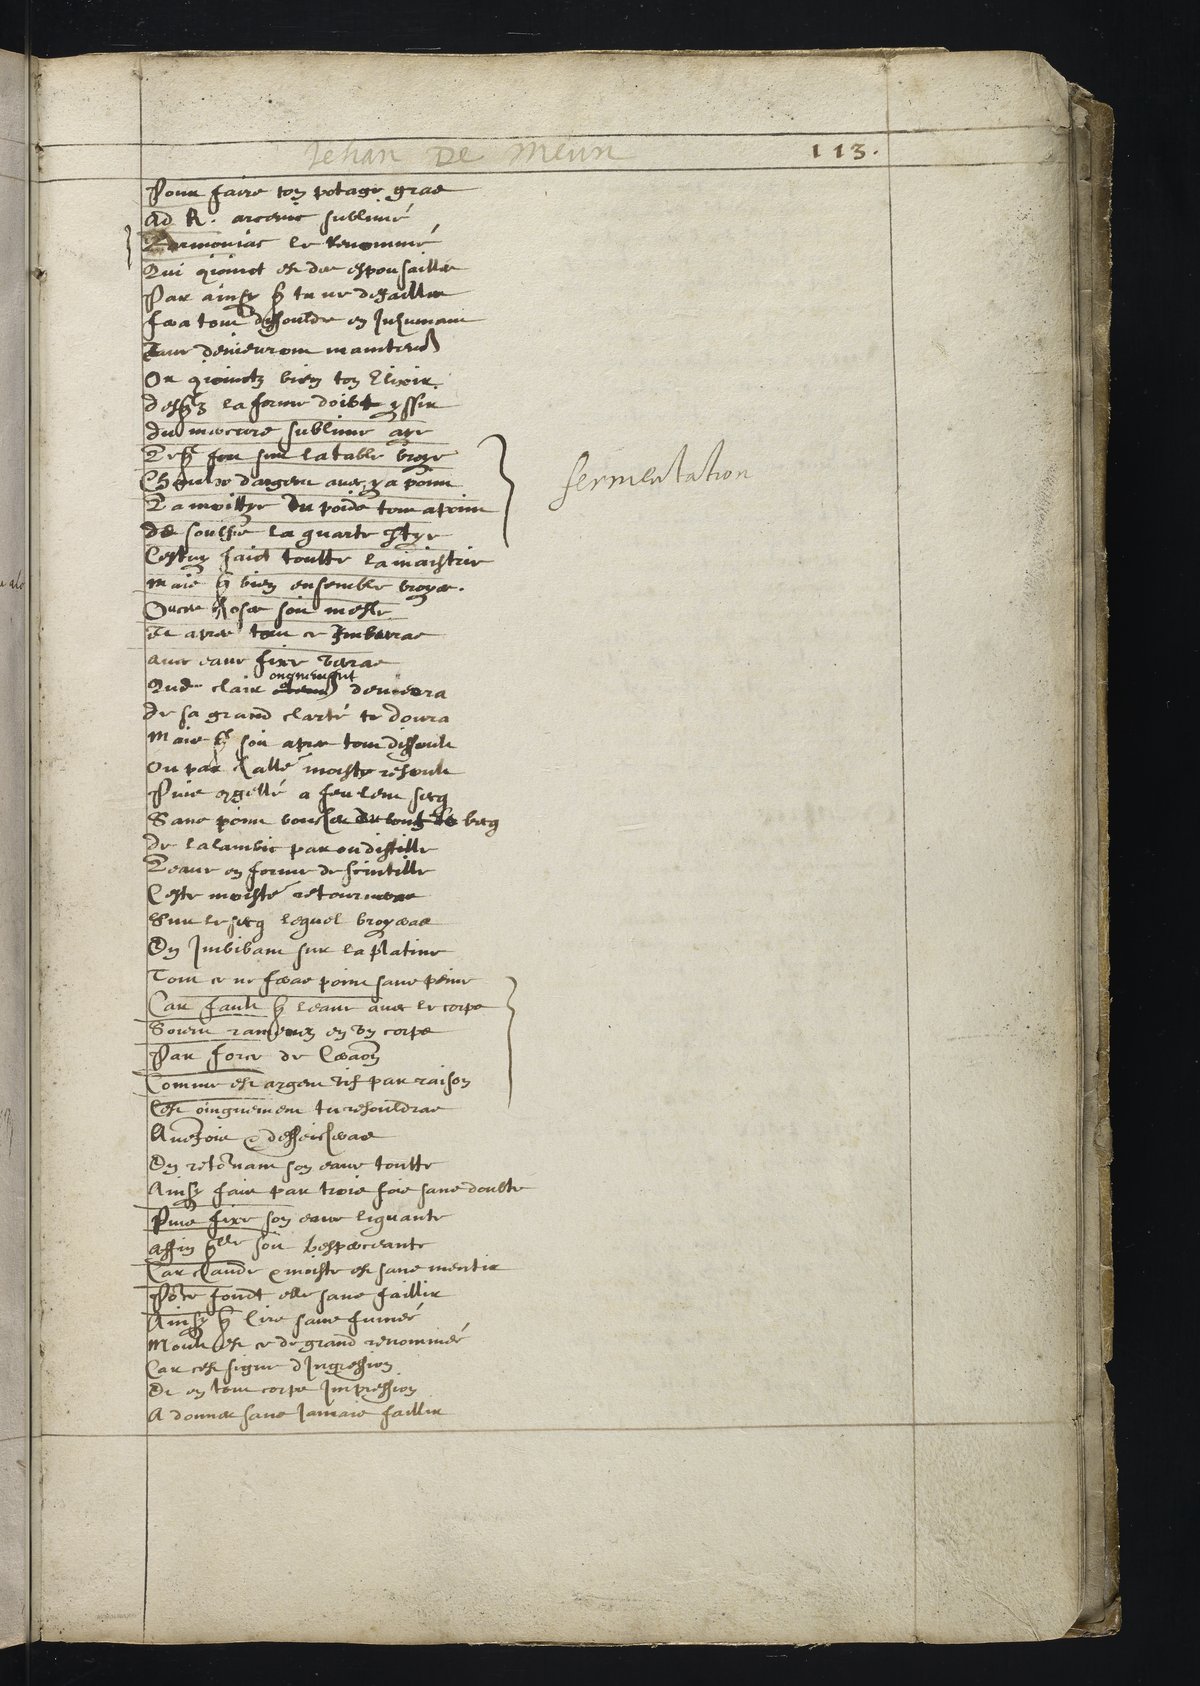 Jehan De Meun 113.
Pour faire ton potage gras
Ad R. arcenic sublimé
L'armoniac le renommé
Qui qioinct est des espousailles
Par ainsy q̃ tu ne desailles
Fera tout dissouldre en
Eaue demeurront maintenāt
Or qioinctz bien ton Elixir
la forme doibt yssir
du mercure sublime aye
sur la table broye
Chaulx d'argent avec y a point
La moittye du poids tout apoint
de soulfre la quarte
Cestuy faict toutte la maistrie
Mais q̃ bien ensemble broyes.
Ces choses soit mesle
Et apres tout ce Imberas
avec eaue fixe
Que clair ongnement demeura
de sa grand clarté te doura
Mais q̃ soit apres tout dissoult
Ou par challe moiste resoult
Puis congellé a feu lent secq
Sans point boucher becq
de lalambic par ou distille
Leaue en forme de scintille
Ceste moisté retourneras
Sur le secq lequel broyeras
En Imbibant sur la platine
Tout ce ne feras point sans peine
Car fault q̃ leaue avec le corps
Soient ramenez en un corps
Par force de
Comme est argent vif par raison
Cest oingnement tu resouldras
Aucefois & desseicheras
En retõnant son eaue toutte
Ainsy fais par trois fois sans doubte
Puis fixe son eaue liquante
Affin q̃lle soit
Car chaude & moiste est sans mentir
Põce fondt elle sans faillir
Ainsy q̃ cire sans fumée
Moult est ce de grand renommée
Car cest signe d Ingression
Et en tout corps Impression
A donner sans Jamais faillir
fermentation